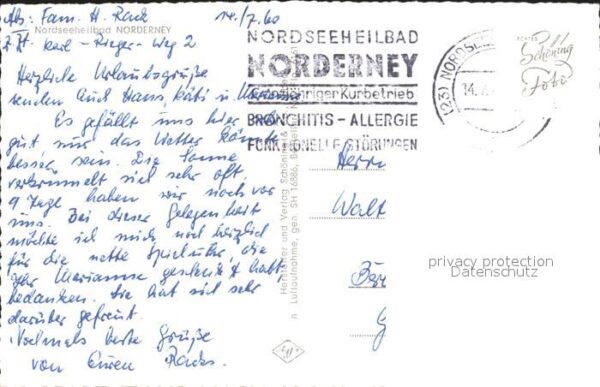 Abs: Fam. H. Rack 14./7.60
Nordseeheilbad NORDERNEY
z. Zt. Karl-Rieger-Weg 2
Herzliche Urlaubsgrüße
senden Euch Hans, Käti u. Marianne
Es gefällt uns hier
gut, nur das Wetter könnte
besser sein. Die Sonne
verkrümelt sich sehr oft.
9 Tage haben wir noch vor
uns. Bei dieser Gelegenheit
möchte ich mich noch herzlich
für die nette Spieluhr, die
Ihr Marianne geschenkt habt,
bedanken. Sie hat sich sehr
darüber gefreut.
Nochmals beste Grüße
von Euren Racks.
NORDSEEHEILBAD
NORDERNEY
ganzjähriger Kurbetrieb
BRONCHITIS - ALLERGIE
FUNKTIONELLE STÖRUNGEN
(23) NORDS
14.
ECHTES
Schöning
Foto
Hersteller und Verlag Schöning &
Luftaufnahme, gen. SH 16886,
Herrn
Walt
Bär
G
privacy protection
Datenschutz